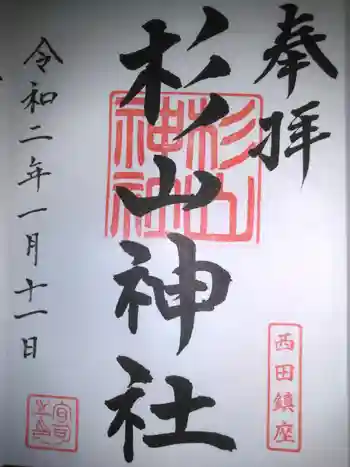 奉拝
杉山神社
杉山
神社
西田鎮座
令和二年一月十一日